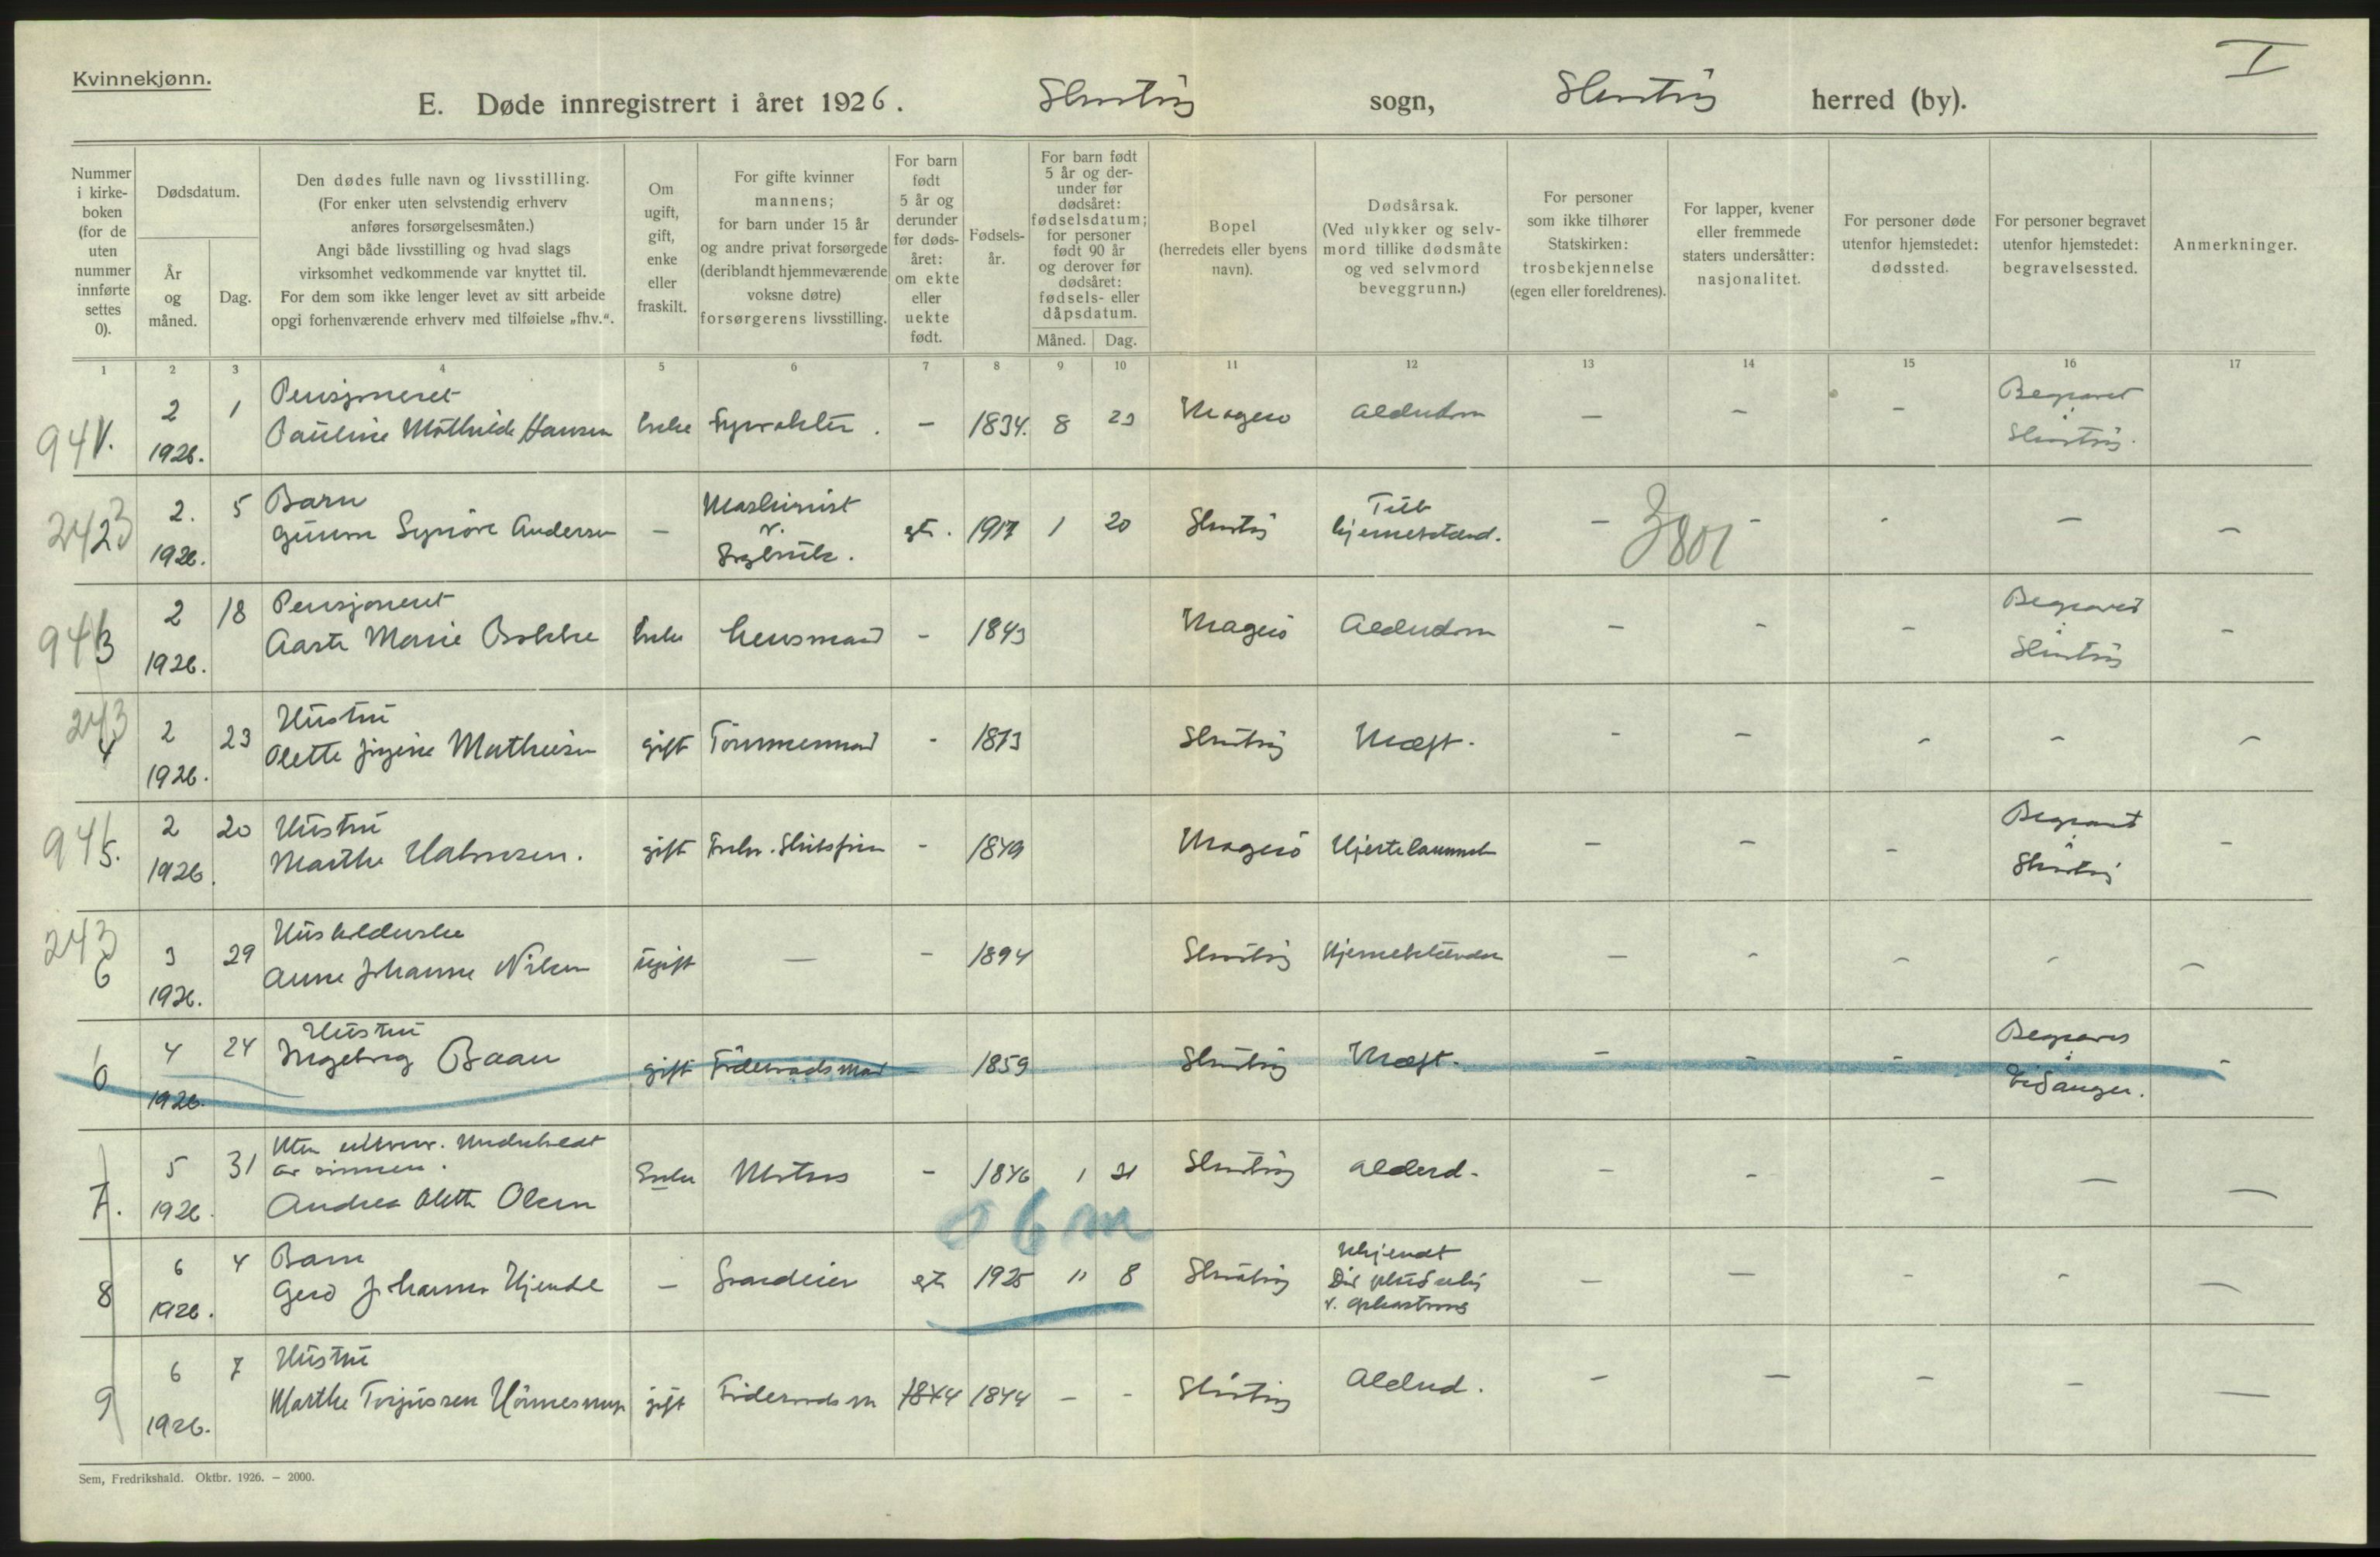 Kvinnekjønn.
I
E. Døde innregistrert i året 1926. sogn, herred (by).
Nummer
i kirke-
boken
(for de
uten
nummer
innførte
settes
0).
Dødsdatum.
År
og
måned.
Dag.
Den dødes fulle navn og livsstilling.
(For enker uten selvstendig erhverv
anføres forsørgelsesmåten.)
Angi både livsstilling og hvad slags
virksomhet vedkommende var knyttet til.
For dem som ikke lenger levet av sitt arbeide
opgi forhenværende erhverv med tilføielse „fhv.“.
Om
ugift,
gift,
enke
eller
fraskilt.
For gifte kvinner
mannens;
for barn under 15 år
og andre privat forsørgede
(deriblandt hjemmeværende
voksne døtre)
forsørgerens livsstilling.
For barn
født
5 år og
derunder
før døds-
året:
om ekte
eller
uekte
født.
Fødsels-
år.
For barn født
5 år og der-
under før
dødsåret:
fødselsdatum;
for personer
født 90 år
og derover før
dødsåret:
fødsels- eller
dåpsdatum.
Måned. Dag.
Bopel
(herredets eller byens
navn).
Dødsårsak.
(Ved ulykker og selv-
mord tillike dødsmåte
og ved selvmord
beveggrunn.)
For personer
som ikke tilhører
Statskirken:
trosbekjennelse
(egen eller foreldrenes).
For lapper, kvener
eller fremmede
staters undersåtter:
nasjonalitet.
For personer døde
utenfor hjemstedet:
dødssted.
For personer begravet
utenfor hjemstedet:
begravelsessted.
Anmerkninger.
1 2 3 4 5 6 7 8 9 10 11 12 13 14 15 16 17
2 1 Pensjoneret
941. 1926. Pauline Mathilde Hansen Enke - 1834. 8 23 Alderdom - - - Begravet
2. 5 Barn Maskinist
243 2 1926. Gunvor Synöve Andersen - v. egt. 1917 1 20 Tub. - 3801 - - - -
2 18 Pensjoneret
941 3 1926. Aaste Marie Bakke Enke Lensmand - 1843 Alderdom - - - Begravet -
2 23 Hustru
243 4 1926. Olette Jigine Mathisen gift Tømmermand - 1873 Kræft. - - - - -
2 20 Hustru
941 5. 1926. Marthe Halvorsen. gift - 1849 Hjertelammelse - - - Begravet -
3 29 Husholderske
243 6 1926. Anne Johanne Nilsen ugift - - 1894 - - - - -
4 24 Hustru
0 1926. Ingeborg Baan gift Föderaadsmand - 1859 Kræft. - - - Begraves -
Eidanger.
5 31 Uten erhverv. Underholdt
av sønnen.
7. 1926. Andrea Olette Olsen Enke - 1846 1 21 Alderd. - - - - -
0 6 m
6 4 Barn Ukjendt
8 1926. Gerd Johanne Hjendal - Gaardeier egte 1925 11 8 - - - - -
6 7 Hustru
9 1926. Marthe Torjussen gift Föderaads m 1844 1844 - - Alderd. - - - - -
Sem, Fredrikshald. Oktbr. 1926. — 2000.